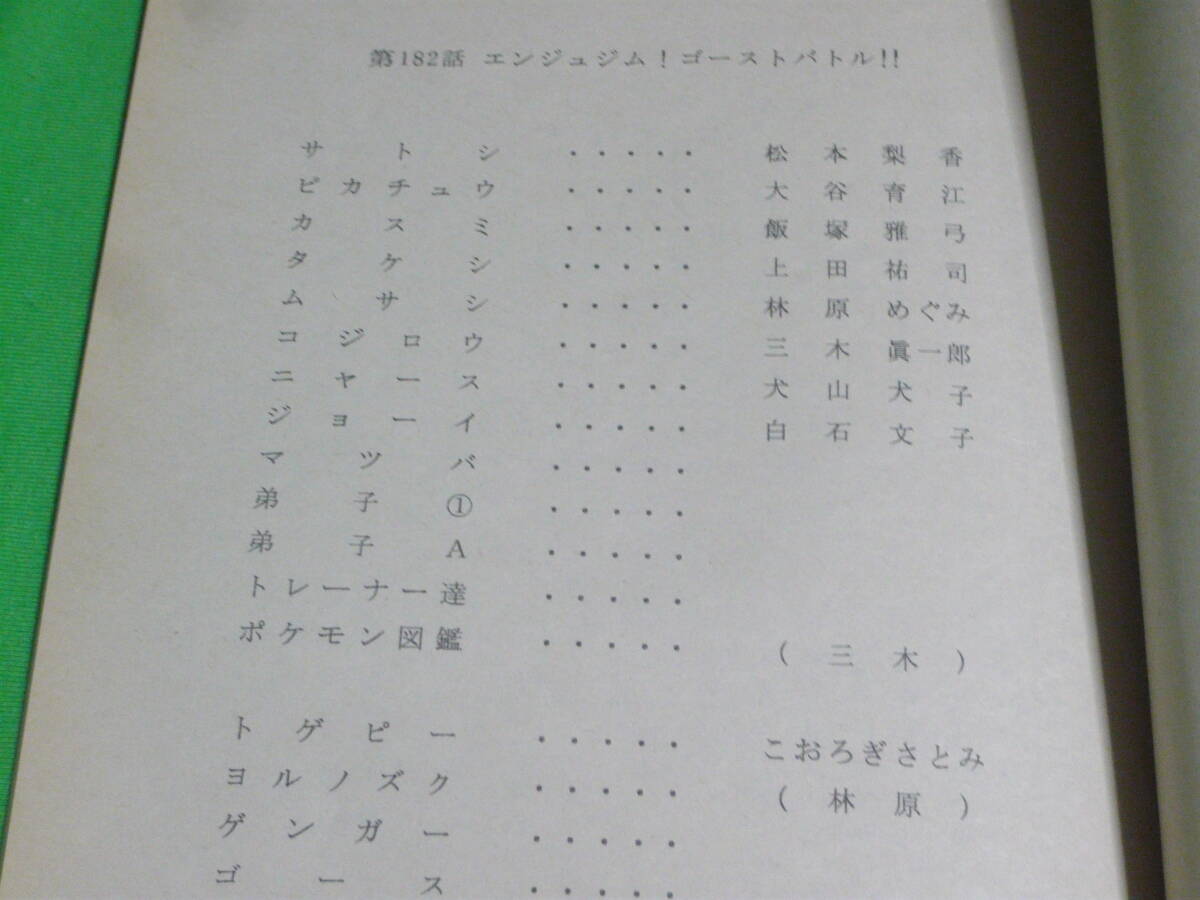 第182話 エンジュジム！ゴーストバトル!!
サトシ ・・・・・ 松本梨香
ピカチュウ ・・・・・ 大谷育江
カスミ ・・・・・ 飯塚雅弓
タケシ ・・・・・ 上田祐司
ムサシ ・・・・・ 林原めぐみ
コジロウ ・・・・・ 三木眞一郎
ニャース ・・・・・ 犬山犬子
ジョーイ ・・・・・ 白石文子
マツバ ・・・・・
弟子① ・・・・・
弟子A ・・・・・
トレーナー達 ・・・・・
ポケモン図鑑 ・・・・・ (三木)
トゲピー ・・・・・ こおろぎさとみ
ヨルノズク ・・・・・ (林原)
ゲンガー ・・・・・
ゴース ・・・・・